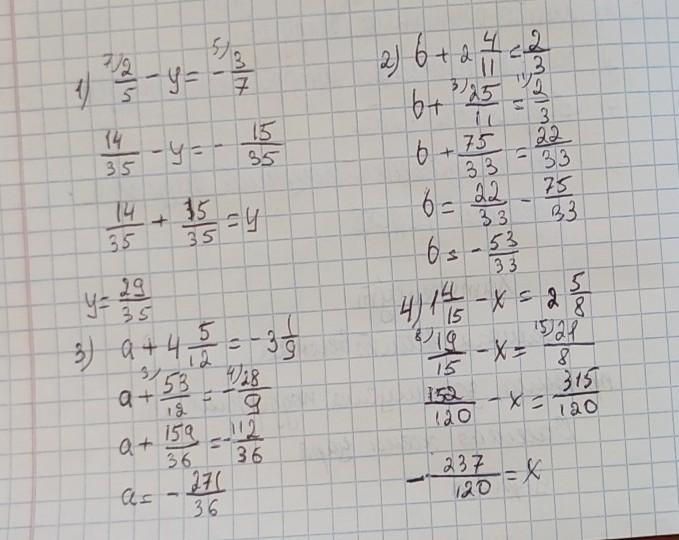 1) ⁷⁾2/5 - y = - ⁵⁾3/7
14/35 - y = - 15/35
14/35 + 15/35 = y
y = 29/35
2) b + 2 4/11 = 2/3
b + ³⁾25/11 = ¹¹⁾2/3
b + 75/33 = 22/33
b = 22/33 - 75/33
b = - 53/33
3) a + 4 5/12 = -3 1/9
a + ³⁾53/12 = - ⁴⁾28/9
a + 159/36 = - 112/36
a = - 271/36
4) 1 4/15 - x = 2 5/8
⁸⁾19/15 - x = ¹⁵⁾21/8
152/120 - x = 315/120
- 237/120 = x